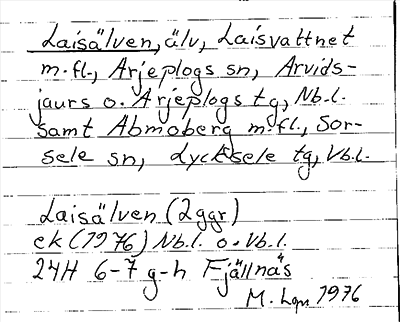 Laisälven, älv, Laisvattnet
m.fl., Arjeplogs sn, Arvids-
jaurs o. Arjeplogs tg, Nb.l.
samt Abmoberg m.fl., Sor-
sele sn, Lycksele tg, Vb.l.
Laisälven (2ggr)
ek (1976) Nb.l. o. Vb.l.
24H 6-7 g-h Fjällnäs
M. 1976